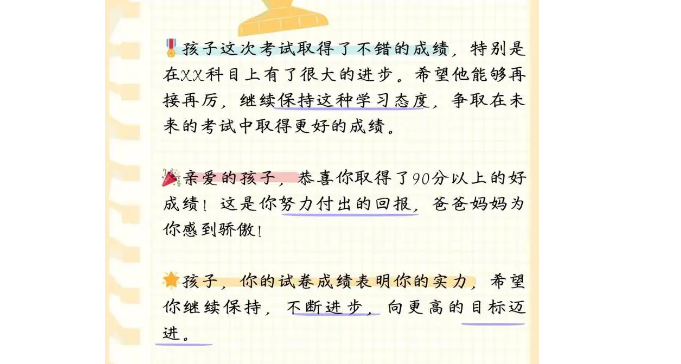 🎖️孩子这次考试取得了不错的成绩，特别是
在XX科目上有了很大的进步。希望他能够再
接再厉，继续保持这种学习态度，争取在未
来的考试中取得更好的成绩。
🎉亲爱的孩子，恭喜你取得了90分以上的好
成绩！这是你努力付出的回报，爸爸妈妈为
你感到骄傲！
⭐孩子，你的试卷成绩表明你的实力，希望
你继续保持，不断进步，向更高的目标迈
进。